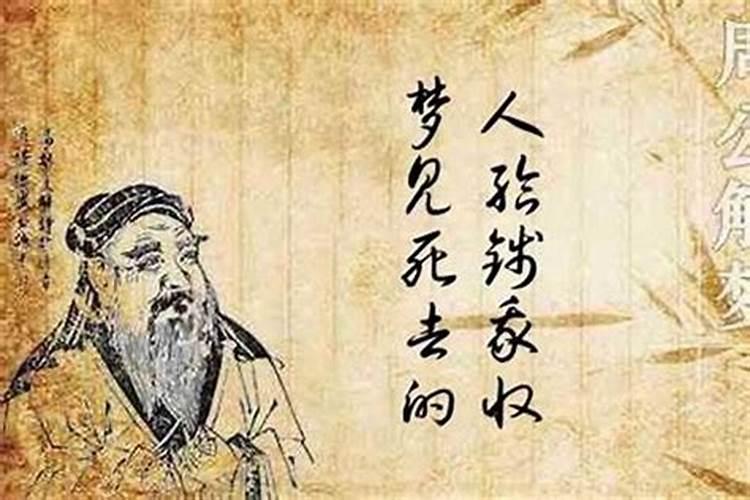 梦见死去的
人给钱我收
周公解梦